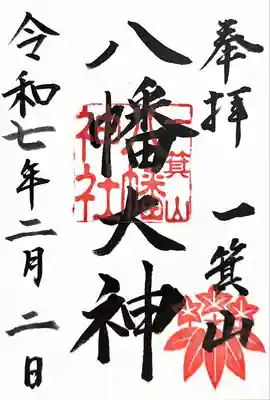 奉拝
一箕山
八幡大神
一箕山
八幡
神社
令和七年二月二日